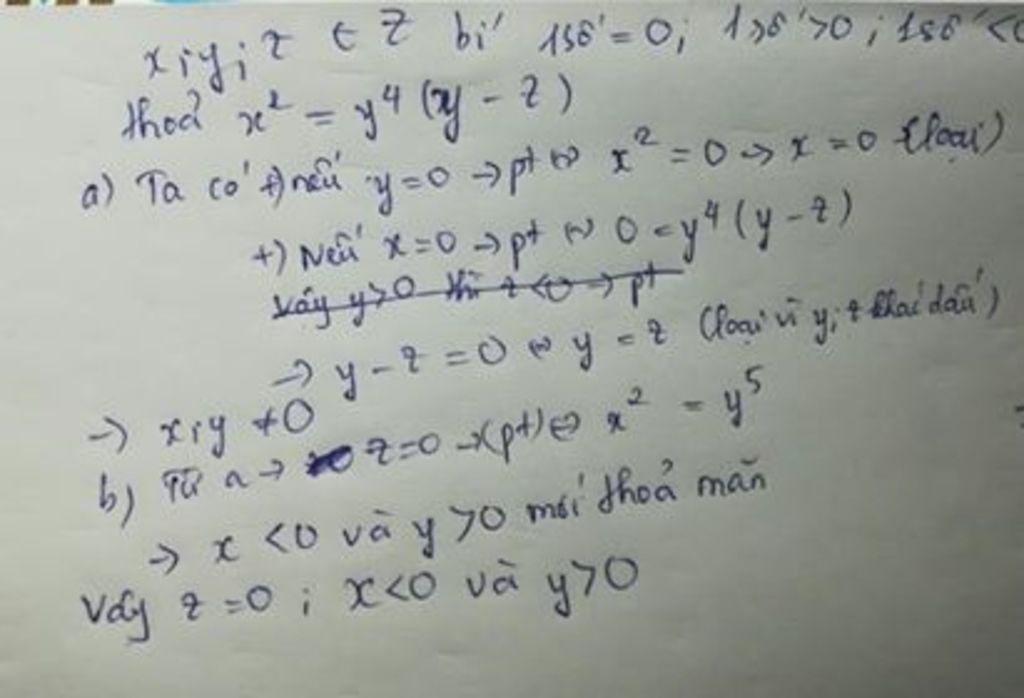 x; y; z ∈ Z bi' 1số = 0; 1số > 0; 1số < 0
thoả x² = y⁴ (y - z)
a) Ta có +) nếu y = 0 → pt ⇔ x² = 0 → x = 0 (loại)
+) Nếu x = 0 → pt ⇔ 0 = y⁴ (y - z)
Vậy y > 0 thì z < 0 → pt
→ y - z = 0 ⇔ y = z (loại vì y; z khai dấu)
→ x; y ≠ 0
b) Từ a → z = 0 → (pt) ⇔ x² = y⁵
→ x < 0 và y > 0 mới thoả mãn
Vậy z = 0 ; x < 0 và y > 0